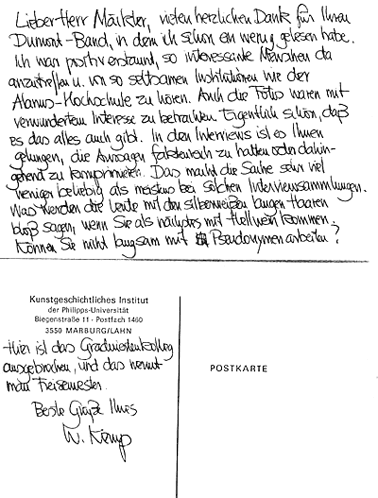 Lieber Herr Märkter, vielen herzlichen Dank für Ihren
Dumont-Band, in dem ich schon ein wenig gelesen habe.
Ich war positiv erstaunt, so interessante Menschen da
anzutreffen u. von so seltsamen Institutionen wie der
Alanus-Hochschule zu hören. Auch die Fotos waren mit
verwundertem Interesse zu betrachten. Eigentlich schön, daß
es das alles auch gibt. In den Interviews ist es Ihnen
gelungen, die Aussagen faktenreich zu halten oder dahin-
gehend zu komprimieren. Das macht die Sache sehr viel
weniger beliebig als meistens bei solchen Interviewsammlungen.
Was werden die Leute mit den silberweißen langen Haaren
bloß sagen, wenn Sie als nächstes mit Hellwein kommen.
Können Sie nicht langsam mit Pseudonymen arbeiten?
Kunstgeschichtliches Institut
der Philipps-Universität
Biegenstraße 11 · Postfach 1460
3550 MARBURG/LAHN
POSTKARTE
Hier ist das Graduiertenkolleg
ausgebrochen, und das nennt
man Freisemester.
Beste Grüße Ihres
W. Kemp